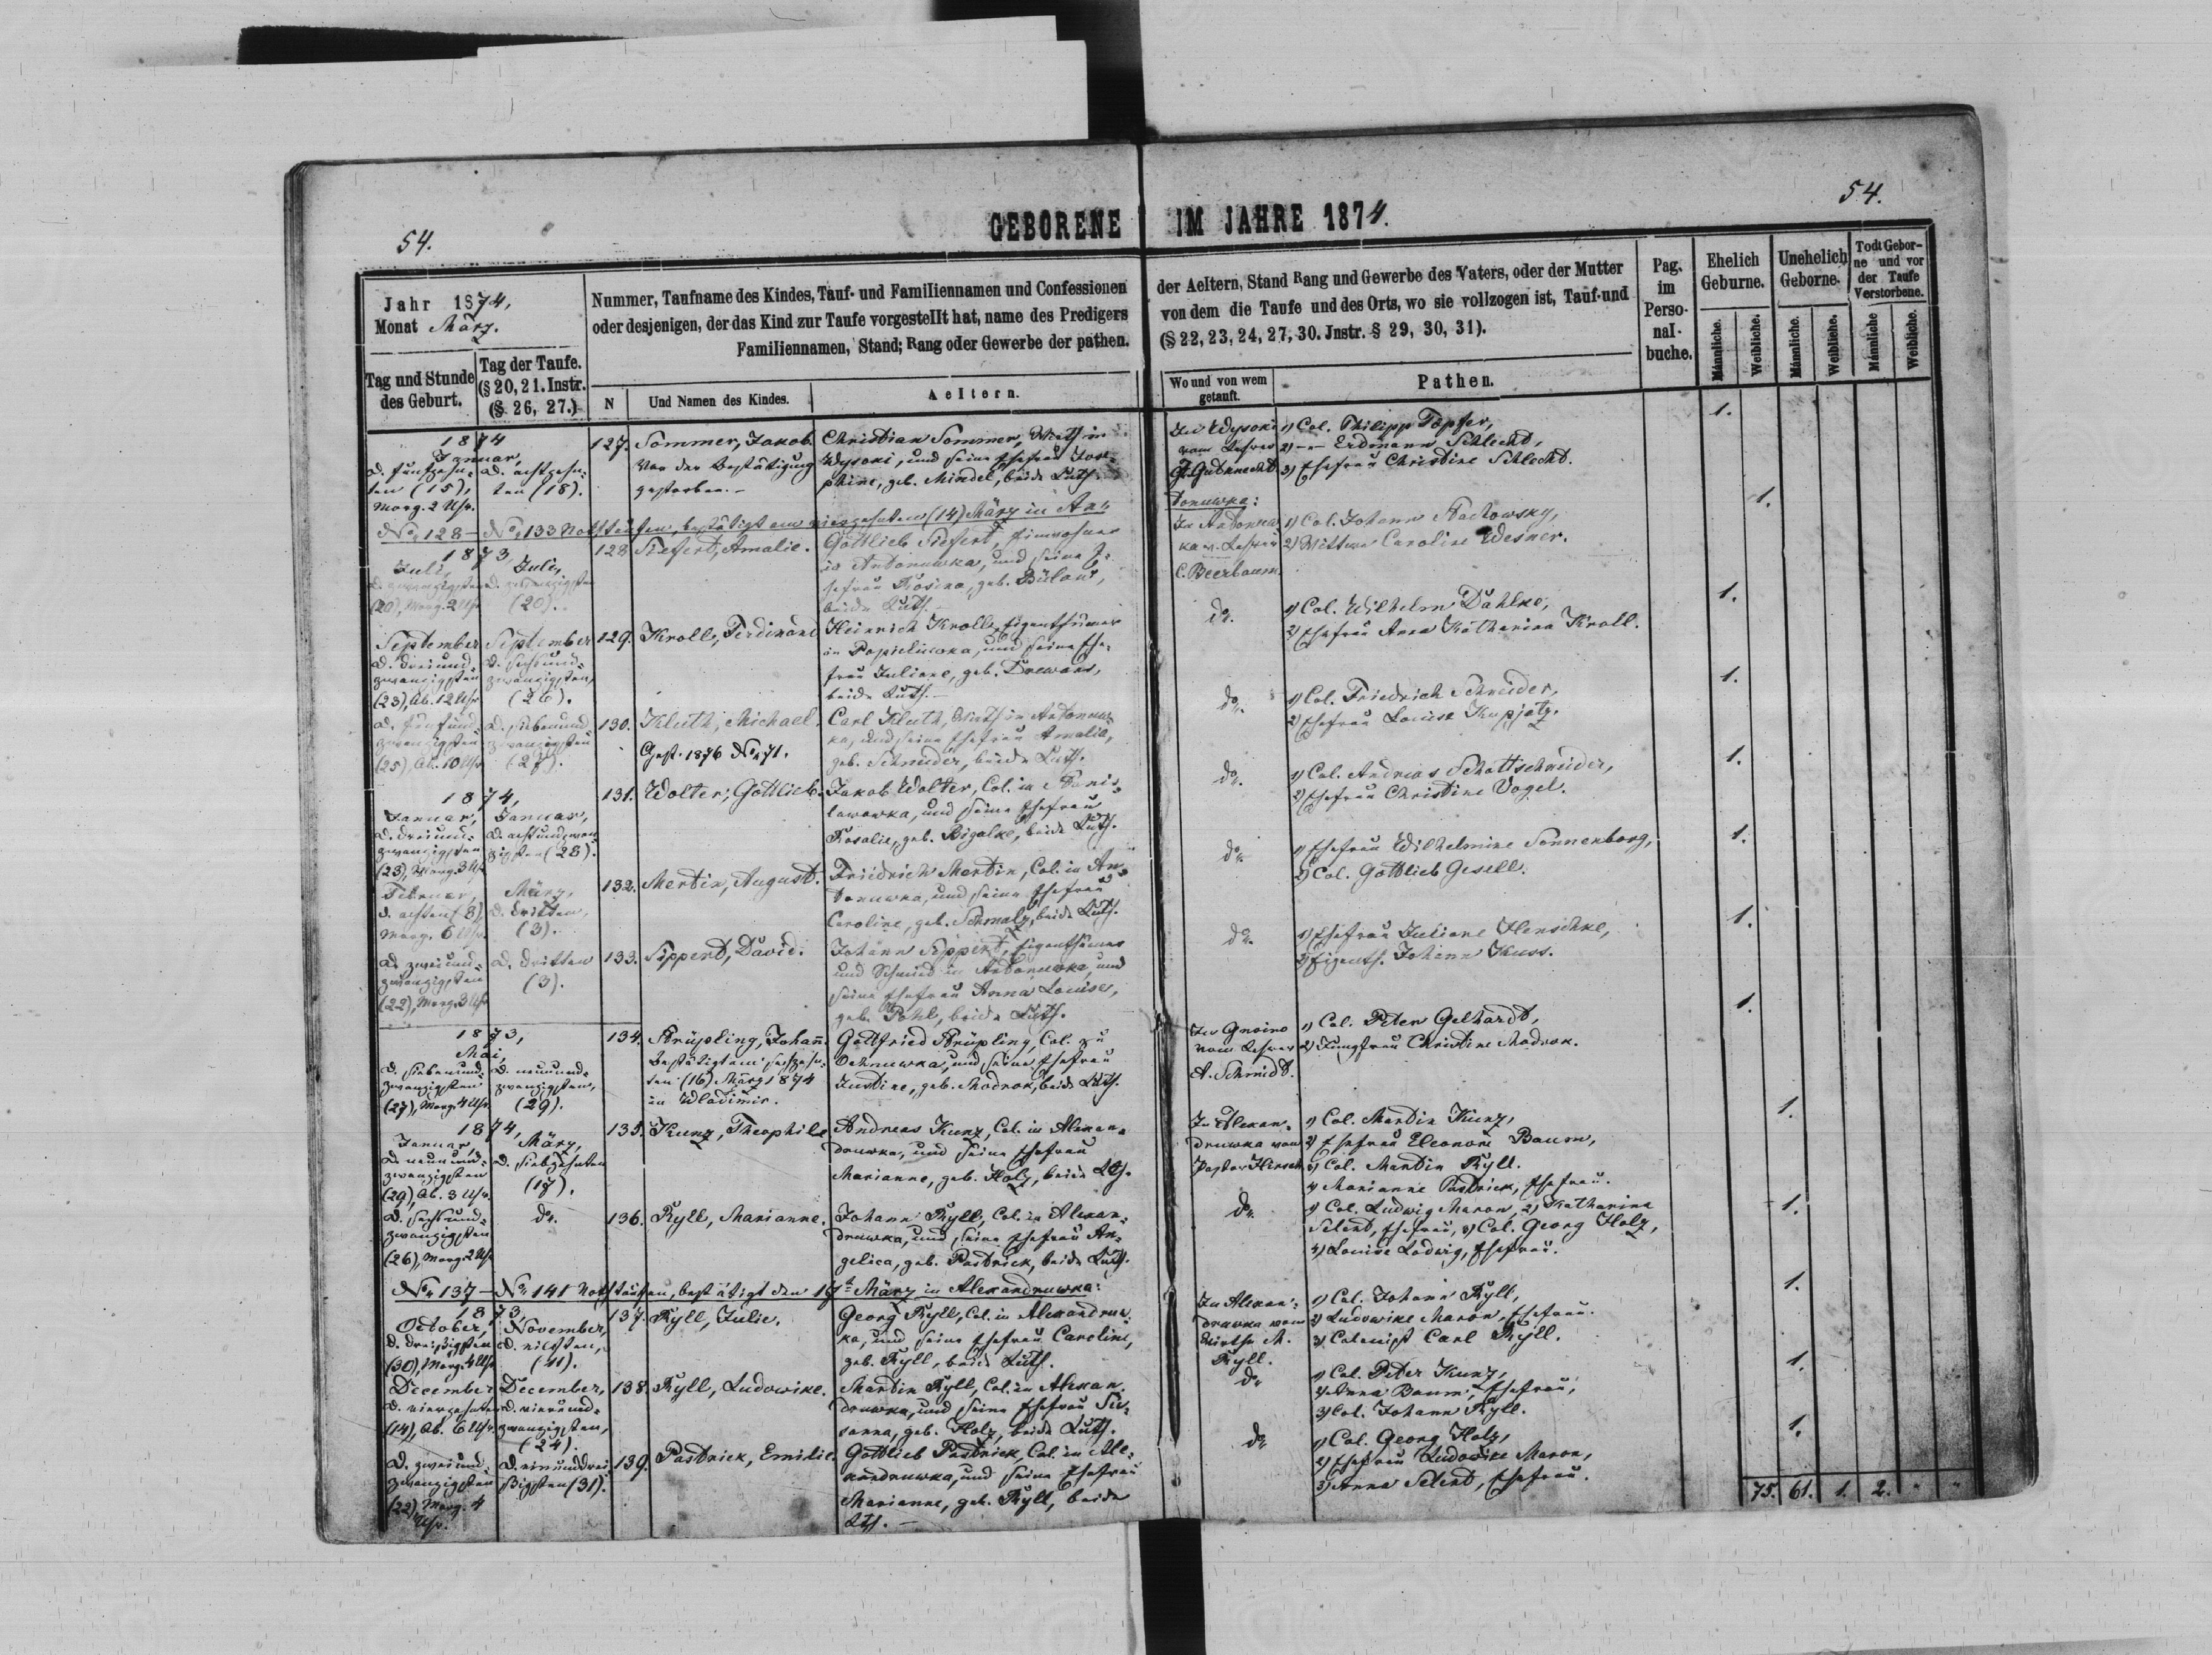 54.
54.
GEBORENE IM JAHRE 1874.
Jahr 1874,
Monat März.
Tag und Stunde
des Geburt.
Tag der Taufe.
(§ 20, 21. Instr.
(§ 26, 27.)
Nummer, Taufname des Kindes, Tauf- und Familiennamen und Confessionen
oder desjenigen, der das Kind zur Taufe vorgestellt hat, name des Predigers
Familiennamen, Stand; Rang oder Gewerbe der pathen.
N
Und Namen des Kindes.
Aeltern.
der Aeltern, Stand Rang und Gewerbe des Vaters, oder der Mutter
von dem die Taufe und des Orts, wo sie vollzogen ist, Tauf-und
(§ 22, 23, 24, 27, 30. Jnstr. § 29, 30, 31).
Wo und von wem
getauft.
Pathen.
Pag.
im
Perso-
nal-
buche.
Ehelich
Geburne.
Unehelich
Geborne.
Todt Gebor-
ne und vor
der Taufe
Verstorbene.
Männliche.
Weibliche.
Männliche.
Weibliche.
Männliche
Weibliche.
1874
Januar,
d. fünfzehn-
ten (15),
Morg. 2 Uhr.
d. achtzehn-
ten (18).
127.
Sommer, Jakob.
Vor der Bestätigung
gestorben.-
Christian Sommer, Wirth in
Wysoki, und seine Ehefrau Jose-
phine, geb. Mindel, beide Luth.
In Wysoki
vom Lehrer
G. Gutknecht
1) Col. Philipp Töpfer,
2) -"- Erdmann Schlecht,
3) Ehefrau Christine Schlecht.
1.
No 128 - No 133 Nothtaufen, bestätigt am vierzehnten (14) März in An-
tonuwka:
1873,
Juli,
d. zwanzigsten
(20), Morg. 2 Uhr
Juli,
d. zwanzigsten
(20).
128
Siefert, Amalie.
Gottlieb Siefert, Einwohner
in Antonuwka, und seine E-
hefrau Rosina, geb. Bülow,
beide Luth.
In Antonuw-
ka v. Lehrer
C. Beerbaum.
1) Col. Johann Rachowsky,
2) Wittwe Caroline Wesner.
1.
September
d. dreiund-
zwanzigsten
(23), Ab. 12 Uhr
September
d. sechsund-
zwanzigsten,
(26).
129.
Kroll, Ferdinand
Heinrich Kroll, Eigenthümer
in Popieluwka, und seine Ehe-
frau Juliane, geb. Drewans,
beide Luth.-
do.
1) Col. Wilhelm Dahlke,
2) Ehefrau Anna Katharina Kroll.
1.
d. fünfund-
zwanzigsten
(25), Ab. 10 Uhr
d. siebenund-
zwanzigsten
(27).
130.
Kluth, Michael.
Gest. 1876 No 71.
Carl Kluth, Wirth in Antonuw-
ka, und seine Ehefrau Amalie,
geb. Schneider, beide Luth.
do.
1) Col. Friedrich Schneider,
2) Ehefrau Louise Kupjetz.
1.
1874,
Januar,
d. dreiund-
zwanzigsten
(23), Morg. 3 Uhr
Januar,
d. achtundzwan-
zigsten (28).
131.
Wolter, Gottlieb.
Jakob Wolter, Col. in Stanis-
lawowka, und seine Ehefrau
Rosalie, geb. Rigalke, beide Luth.
do.
1) Col. Andreas Schattschneider,
2) Ehefrau Christine Vogel.
1.
Februar,
d. achten (8),
Morg. 6 Uhr.
März,
d. dritten,
(3).
132.
Mertin, August.
Friedrich Mertin, Col. in An-
tonuwka, und seine Ehefrau
Caroline, geb. Schmalz, beide Luth.
do.
1) Ehefrau Wilhelmine Sonnenborg,
2) Col. Gottlieb Gesell.
1.
d. zweiund-
zwanzigsten
(22), Morg. 3 Uhr
d. dritten
(3).
133.
Sippert, David.
Johann Sippert, Eigenthümer
und Schmied in Antonuwka, und
seine Ehefrau Anna Louise,
geb. Pohl, beide Luth.
do.
1) Ehefrau Juliane Henschke,
2) Eigenth. Johann Kuss.
1.
1873,
Mai,
d. siebenund-
zwanzigsten
(27), Morg. 4 Uhr
d. neunund-
zwanzigsten,
(29).
134.
Strüpling, Johann.
bestätigt am sechzehn-
ten (16) März 1874
in Wladimir.
Gottfried Strüpling, Col. zu
Ochnuwka, und seine Ehefrau
Justine, geb. Modrok, beide Luth.
In Gnoino
vom Lehrer
A. Schmidt.
1) Col. Peter Gelhardt,
2) Jungfrau Christine Modrok.
1.
1874,
Januar,
d. neunund-
zwanzigsten
(29), Ab. 3 Uhr.
März,
d. siebzehnten
(17).
135.
Kunz, Theophile
Andreas Kunz, Col. in Alexan-
druwka, und seine Ehefrau
Marianne, geb. Holz, beide Lth.
In Alexan-
druwka von
Pastor Hirsch.
1) Col. Martin Kunz,
2) Ehefrau Eleonore Baum,
3) Col. Martin Ryll.
4) Marianne Pastriek, Ehefrau.
1.
d. sechsund-
zwanzigsten
(26), Morg. 2 Uhr
do.
136.
Ryll, Marianne.
Johann Ryll, Col. in Alexan-
druwka, und seine Ehefrau An-
gelica, geb. Pastriek, beide Luth.
do.
1) Col. Ludwig Maron, 2) Katharina
Selent, Ehefrau, 3) Col. Georg Holz,
4) Louise Ladwig, Ehefrau.
1.
No 137 - No 141 Nothtaufen, bestätigt den 17t März in Alexandruwka:
1873,
October,
d. dreißigsten
(30), Morg. 4 Uhr
November,
d. eilften,
(11).
137.
Ryll, Julie.
Georg Ryll, Col. in Alexandruw-
ka, und seine Ehefrau Caroline,
geb. Ryll, beide Luth.
In Alexan-
druwka vom
Wirthe M.
Ryll.
1) Col. Johann Ryll,
2) Ludowike Maron, Ehefrau.
3) Colonist Carl Ryll.
1.
December
d. vierzehnten
(14), Ab. 6 Uhr.
December,
d. vierund-
zwanzigsten,
(24).
138.
Ryll, Ludowike.
Martin Ryll, Col. in Alexan-
druwka, und seine Ehefrau Su-
sanna, geb. Holz, beide Luth.
do
1) Col. Peter Kunz,
2) Anna Baum, Ehefrau,
3) Col. Johann Ryll.
1.
d. zweiund-
zwanzigsten
(22), Morg. 4
Uhr.
d. einunddrei-
ßigsten (31).
139.
Pastriek, Emilie.
Gottlieb Pastriek, Col. in Ale-
xandruwka, und seine Ehefrau
Marianne, geb. Ryll, beide
Lth.-
do
1) Col. Georg Holz,
2) Ehefrau Ludowike Maron,
3) Anna Selent, Ehefrau.
1.
75. 61. 1. 2. " "